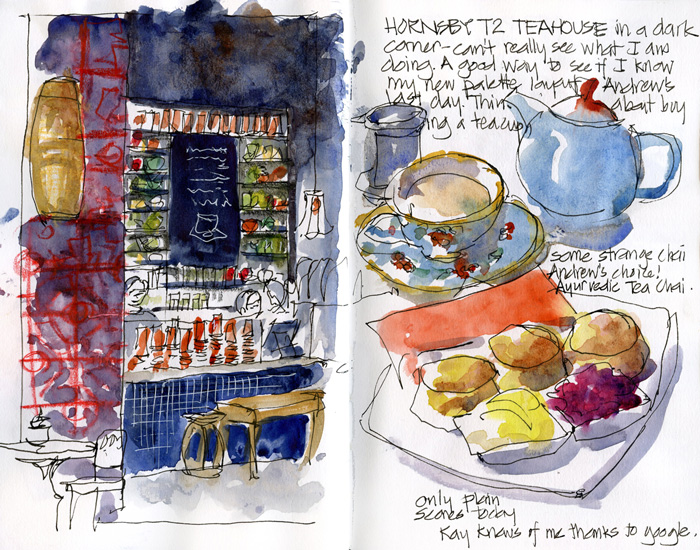 HORNSBY T2 TEAHOUSE in a dark
corner - can't really see what I am
doing. A good way to see if I know
my new palette layout. Andrew's
last day! Think about buy
ing a teacup
some strange chai
Andrew's choice!
Ayurvedic Tea Chai.
only plain
scones today
Kay knows of me thanks to google.